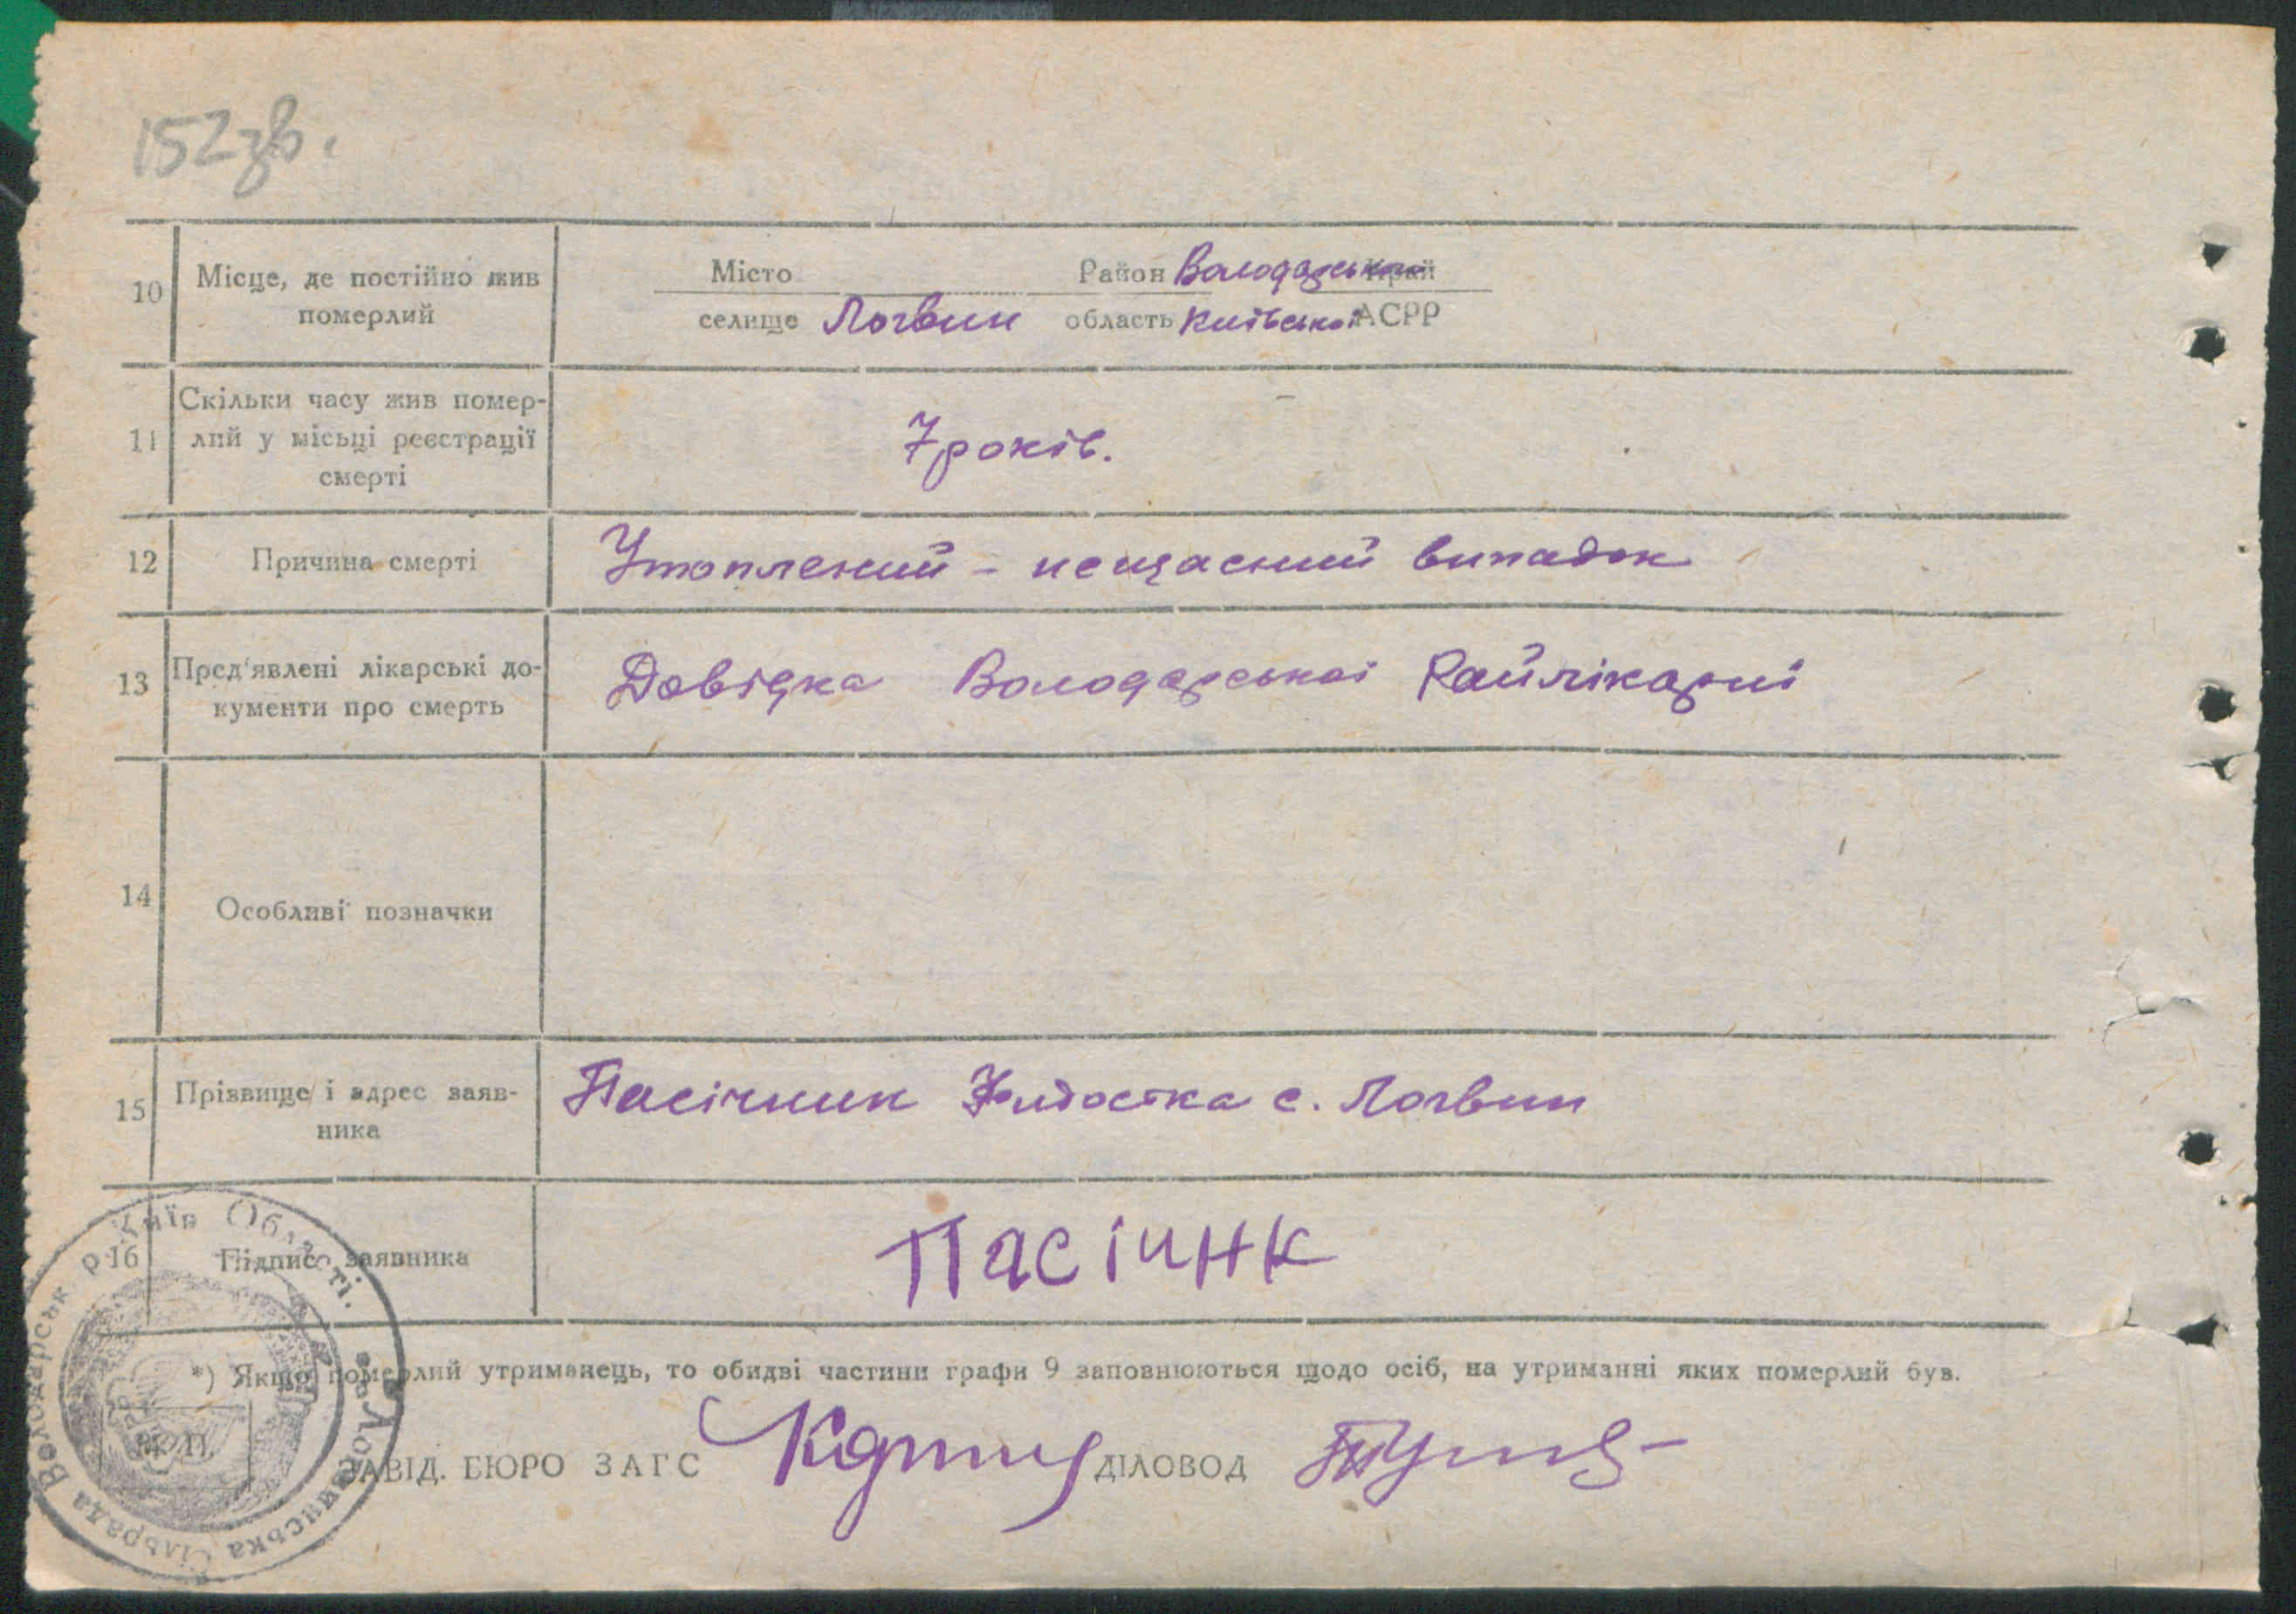 152зв.
10 Місце, де постійно жив померлий
Місто Район Володарського Край
селище Логвин область Київської АСРР
11 Скільки часу жив помер-
лий у місьці реєстрації
смерті
7 років.
12 Причина смерті Утоплений - нещасний випадок
13 Пред'явлені лікарські до-
кументи про смерть
Довідка Володарської Райлікарні
14 Особливі позначки
15 Прізвище і адрес заяв-
ника
Пасічник с. Логвин
16 Підпис заявника Пасічнк
*) Якщо померлий утриманець, то обидві частини графи 9 заповнюються щодо осіб, на утриманні яких померлий був.
М. П.
ЗАВІД. БЮРО ЗАГС ДІЛОВОД
Логвинська Сільрада Володарськ р. Київ Області.